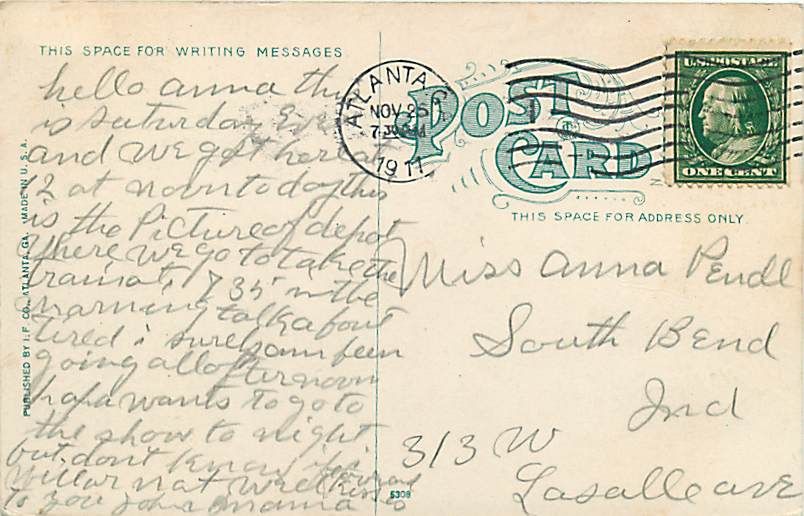 THIS SPACE FOR WRITING MESSAGES
hello anna this
is saturday Eve
and we got here at
12 at noon today this
is the Picture of depot
where we go to take the
train at 7 35 in the
marning talk about
tired i sure am been
going all afternoon
papa wants to go to
the show to night
but dont know if i
will or not
to you mama
PUBLISHED BY I. F. CO., ATLANTA, GA. MADE IN U. S. A.
ATLANTA, GA
NOV 25
1911
POST
CARD
U.S. POSTAGE
ONE CENT
THIS SPACE FOR ADDRESS ONLY.
Miss Anna Pendl
South Bend
Ind
313 W
Lasalle ave
5308